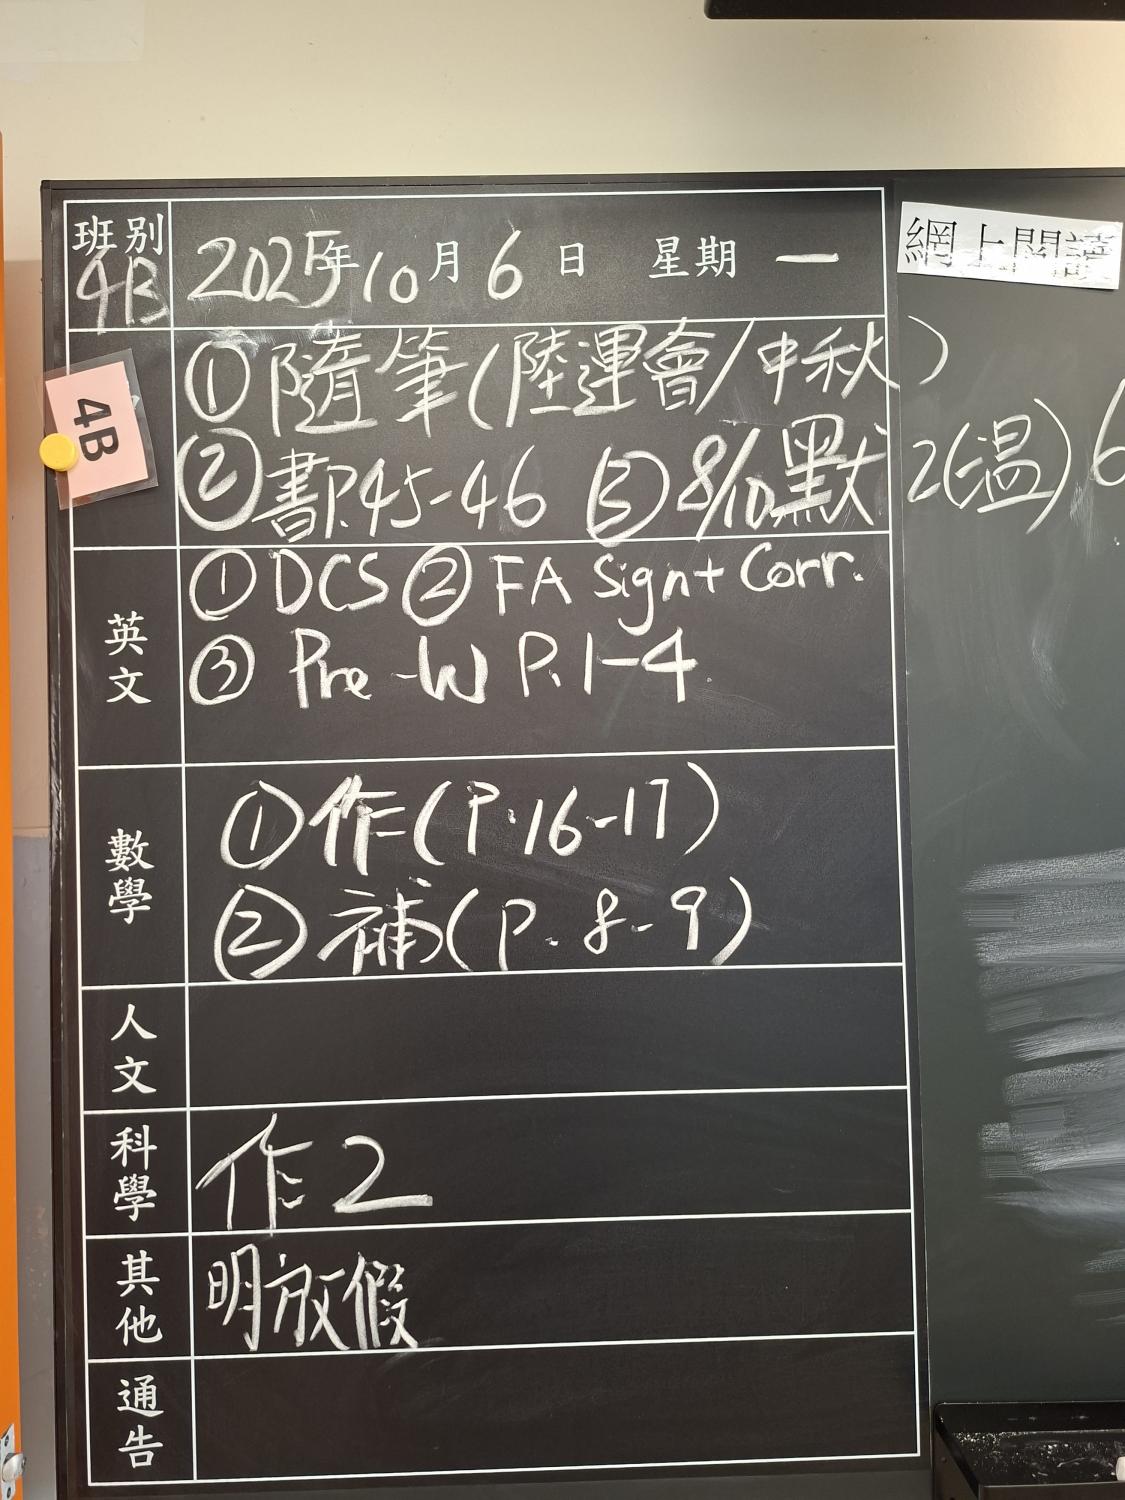 班別 4B 2025年10月6日 星期一
網上閱讀
4B
①隨筆(陸運會/中秋)
②書P.45-46 ③8/10默2(温) 6
英文
①DCS ②FA Sign+Corr.
③Pre-W P.1-4
數學
①作(P.16-17)
②補(P.8-9)
人文
科學 作2
其他 明放假
通告